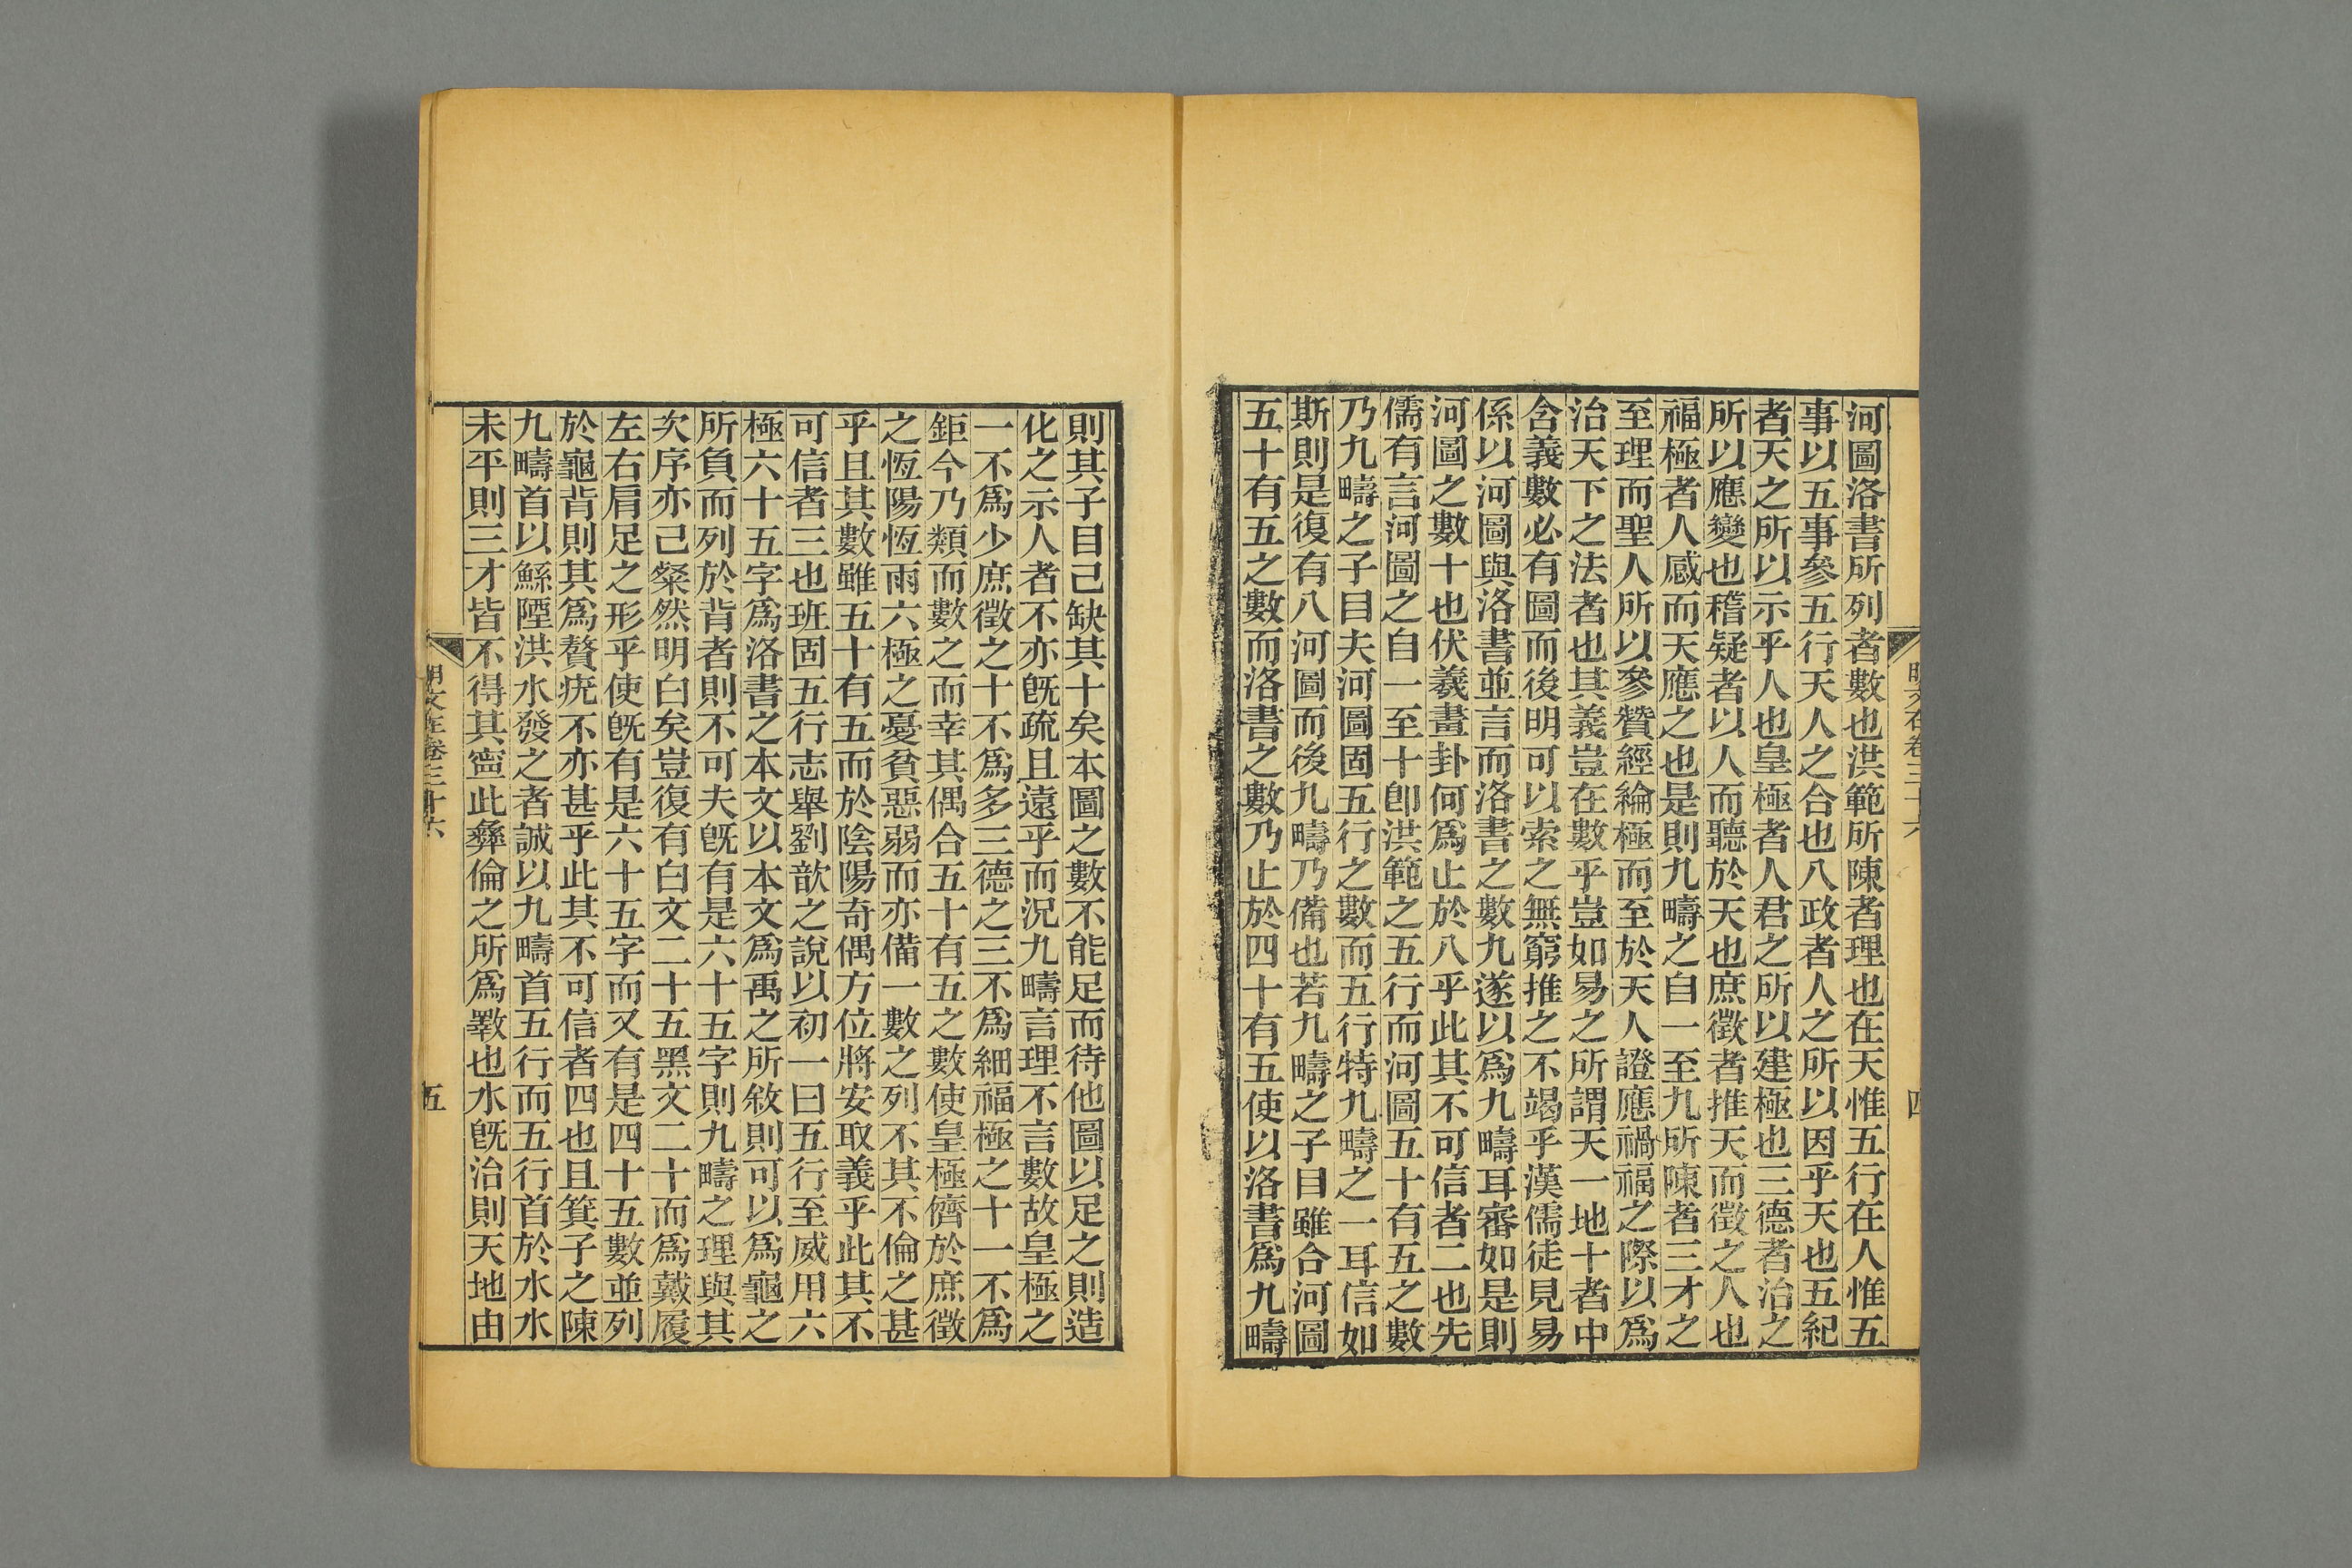 河圖洛書所列者數也洪範所陳者理也在天惟五行在人惟五
事以五事參五行天人之合也八政者人之所以因乎天也五紀
者天之所以示乎人也皇極者人君之所以建極也三德者治之
所以應變也稽疑者以人而聽於天也庶徵者推天而徵之人也
福極者人感而天應之也是則九疇之自一至九所陳者三才之
至理而聖人所以參贊經綸極而至於天人證應禍福之際以爲
治天下之法者也其義豈在數乎豈如易之所謂天一地十者中
含義數必有圖而後明可以索之無窮推之不竭乎漢儒徒見易
係以河圖與洛書並言而洛書之數九遂以爲九疇耳審如是則
河圖之數十也伏羲畫卦何爲止於八乎此其不可信者二也先
儒有言河圖之自一至十卽洪範之五行而河圖五十有五之數
乃九疇之子目夫河圖固五行之數而五行特九疇之一耳信如
斯則是復有八河圖而後九疇乃備也若九疇之子目雖合河圖
五十有五之數而洛書之數乃止於四十有五使以洛書爲九疇
明文在卷三十六
四
則其子目己缺其十矣本圖之數不能足而待他圖以足之則造
化之示人者不亦旣疏且遠乎而況九疇言理不言數故皇極之
一不爲少庶徵之十不爲多三德之三不爲細福極之十一不爲
鉅今乃類而數之而幸其偶合五十有五之數使皇極儕於庶徵
之恆陽恆雨六極之憂貧惡弱而亦備一數之列不其不倫之甚
乎且其數雖五十有五而於陰陽奇偶方位將安取義乎此其不
可信者三也班固五行志舉劉歆之說以初一曰五行至威用六
極六十五字爲洛書之本文以本文爲禹之所敘則可以爲龜之
所負而列於背者則不可夫旣有是六十五字則九疇之理與其
次序亦己粲然明白矣豈復有白文二十五黑文二十而爲戴履
左右肩足之形乎使旣有是六十五字而又有是四十五數並列
於龜背則其爲贅疣不亦甚乎此其不可信者四也且箕子之陳
九疇首以鯀陻洪水發之者誠以九疇首五行而五行首於水水
未平則三才皆不得其寧此彝倫之所爲斁也水旣治則天地由
明文在卷三十六
五